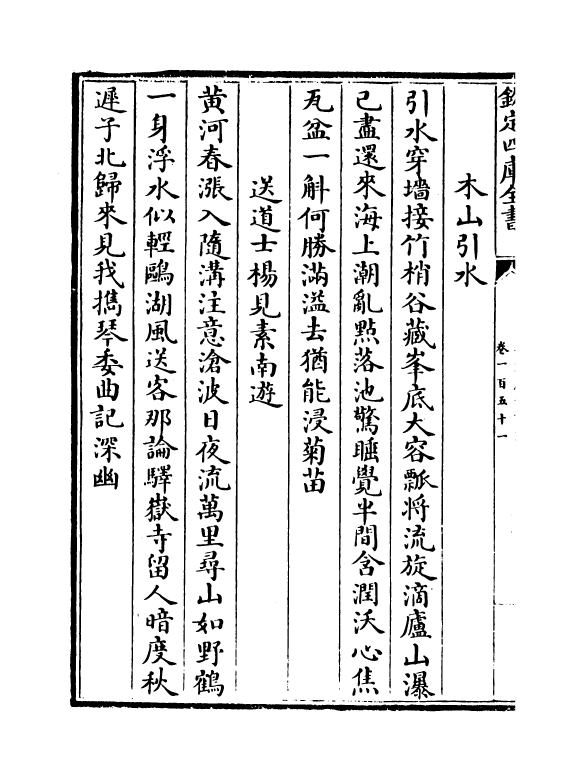 欽定四庫全書
卷一百五十一
木山引水
引水穿墻接竹梢谷藏峯底大容瓢将流旋滴廬山瀑
已盡還來海上潮亂點落池驚睡覺半間含潤沃心焦
瓦盆一斛何勝滿溢去猶能浸菊苗
送道士楊見素南遊
黄河春漲入隨溝注意滄波日夜流萬里尋山如野鶴
一身浮水似輕鷗湖風送客那論驛嶽寺留人暗度秋
遲子北歸來見我擕琴委曲記深幽